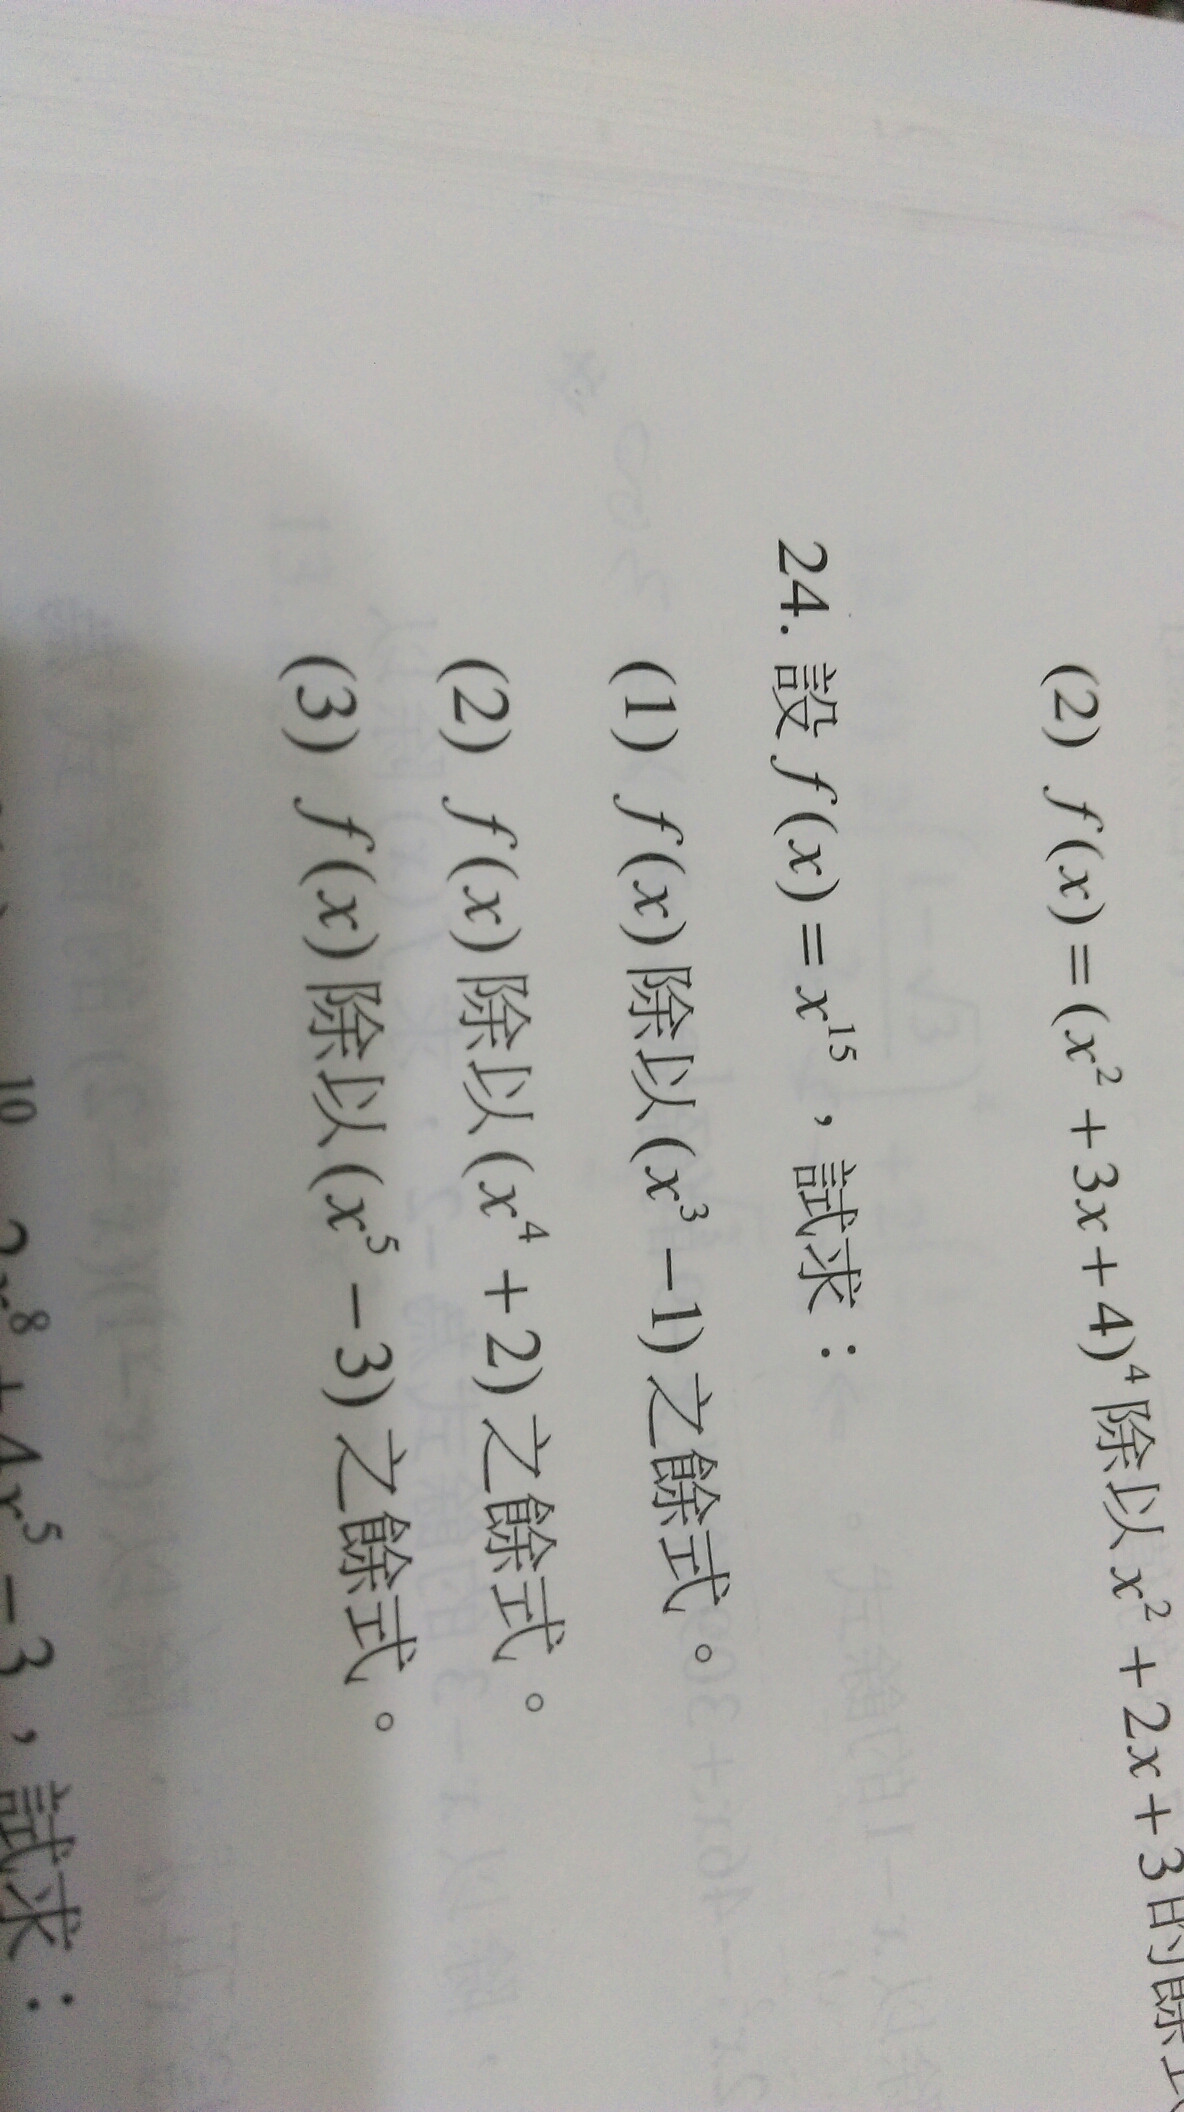 (2) f(x)=(x²+3x+4)⁴除以x²+2x+3的餘式
24. 設f(x)=x¹⁵，試求：
(1) f(x)除以(x³−1)之餘式。
(2) f(x)除以(x⁴+2)之餘式。
(3) f(x)除以(x⁵−3)之餘式。
2x⁸+4x⁵−3，試求：